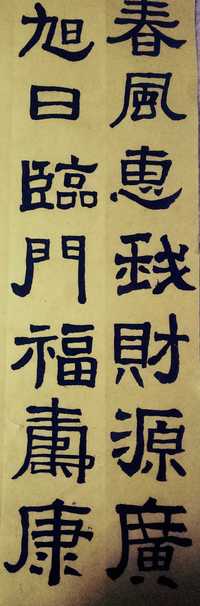 春風惠我財源廣
旭日臨門福壽康